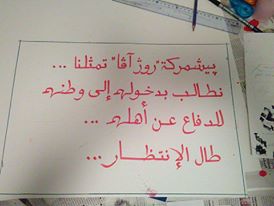 پيشمركة "روژ آڤا" تمثلنا ...
نطالب بدخولهم إلى وطنهم
للدفاع عن أهلهم ...
طال الإنتظار ...